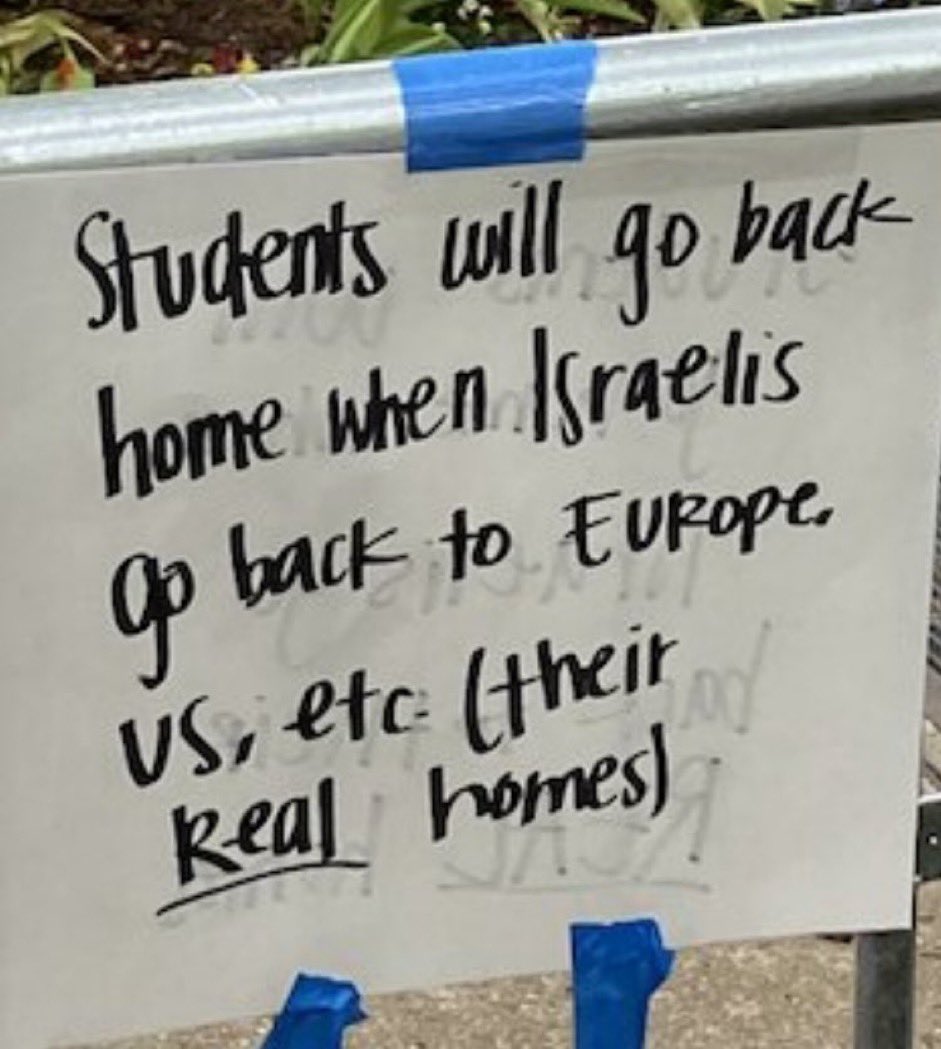 Students will go back
home when Israelis
go back to Europe.
US, etc. (their
Real homes)